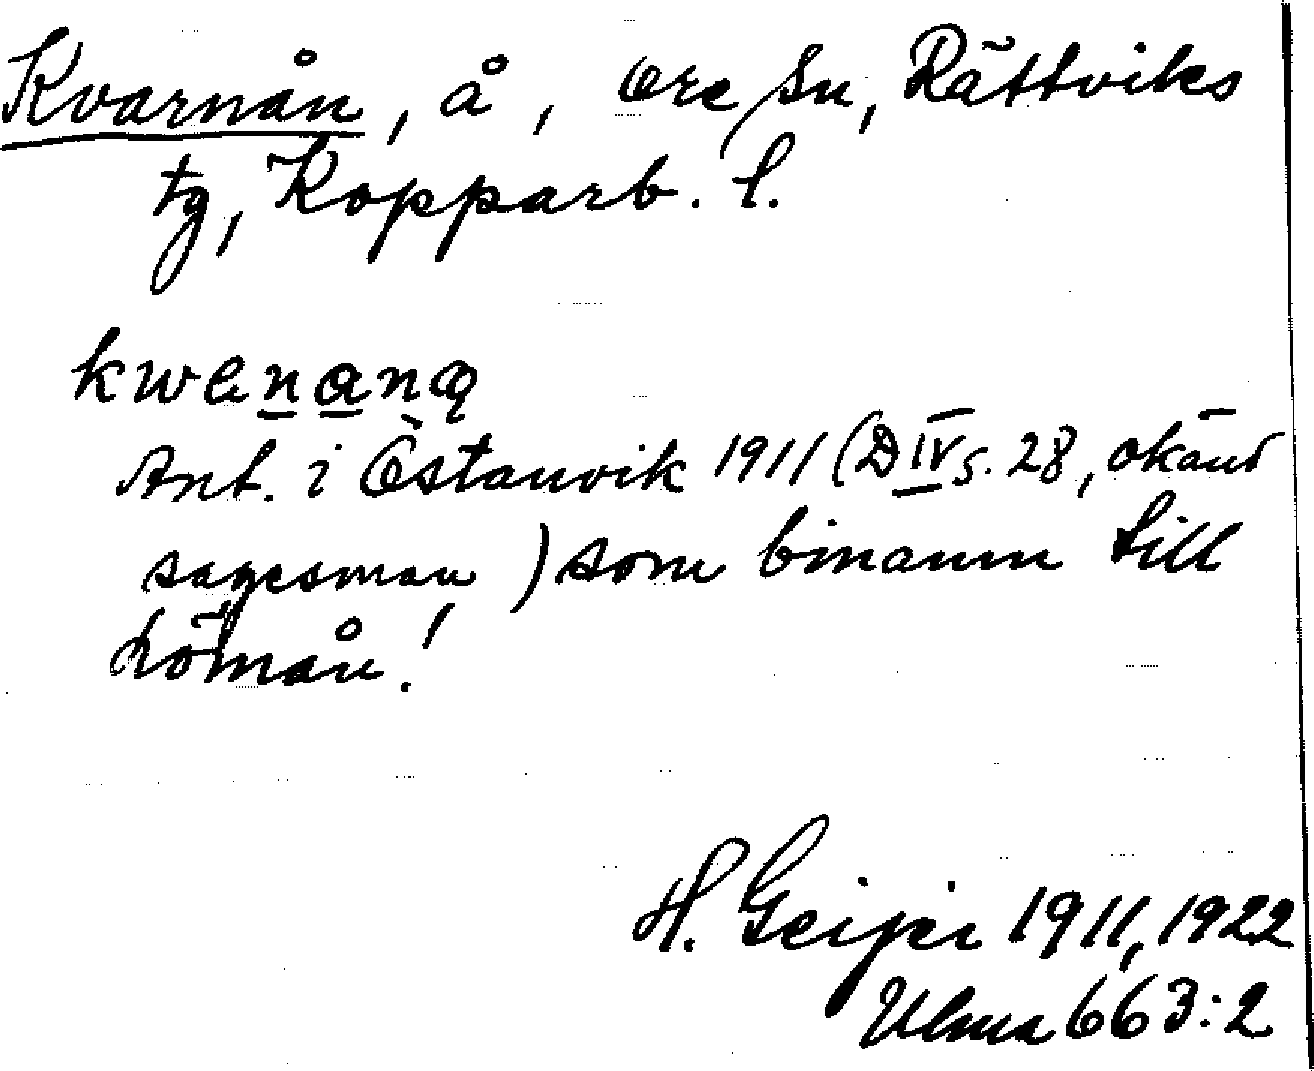 Kvarnån, å, Ore Sn, Rättviks
tg, Kopparb. l.
Ant. i Östanvik 1911 (D IV s. 28, okänd
sagesman) som binamn till
Lömån!
H. Geijer 1911, 1922
Ulma 663:2